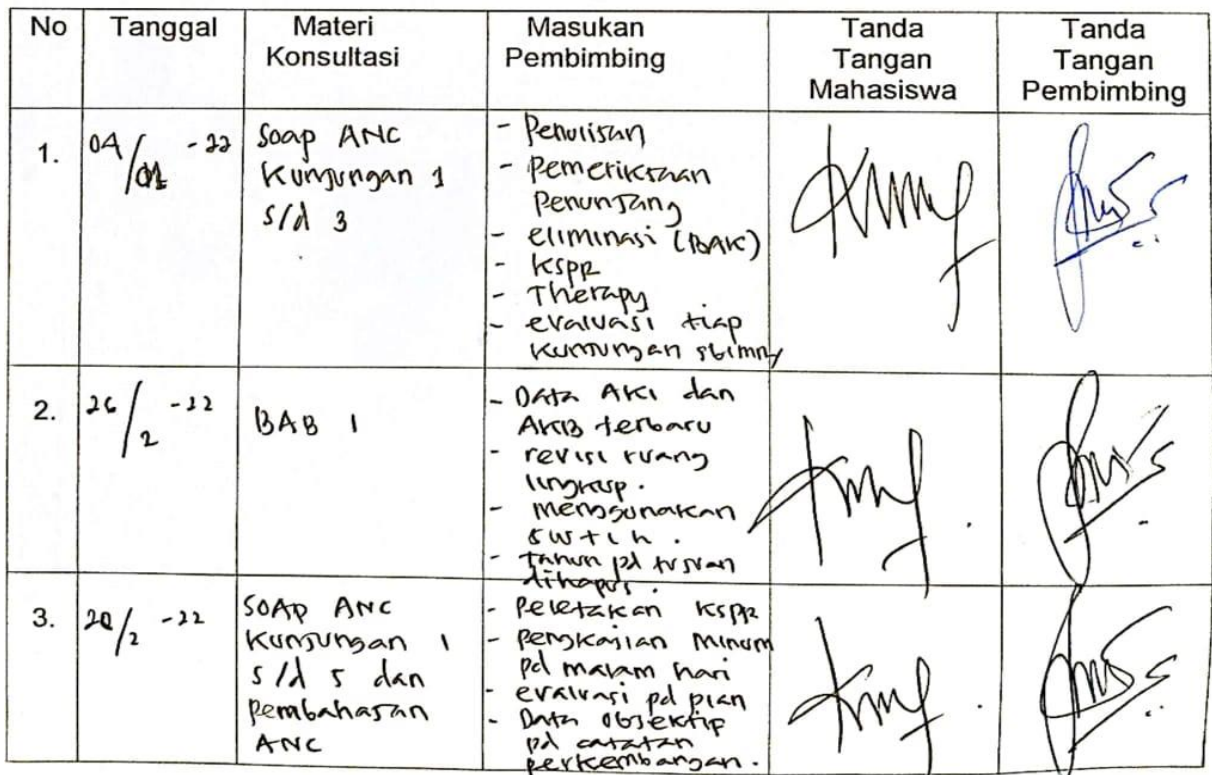 No Tanggal Materi Konsultasi Masukan Pembimbing Tanda Tangan Mahasiswa Tanda Tangan Pembimbing
1. 04/01 -22
Soap ANC
Kunjungan 1
s/d 3
- Penulisan
- Pemeriksaan
penunjang
- eliminasi (BAK)
- KSPR
- Therapy
- evaluasi tiap
kunjungan sblmny
2. 26/2 -22
BAB 1
- Data AKI dan
AKB terbaru
- revisi ruang
lingkup.
- menggunakan
- tahun pd
dihapus.
3. /2 -22
SOAP ANC
Kunjungan 1
s/d 5 dan
pembahasan
ANC
- Peletakan KSPR
- pengkajian minum
pd malam hari
- evaluasi pd plan
- Data objektif
pd catatan
perkembangan.